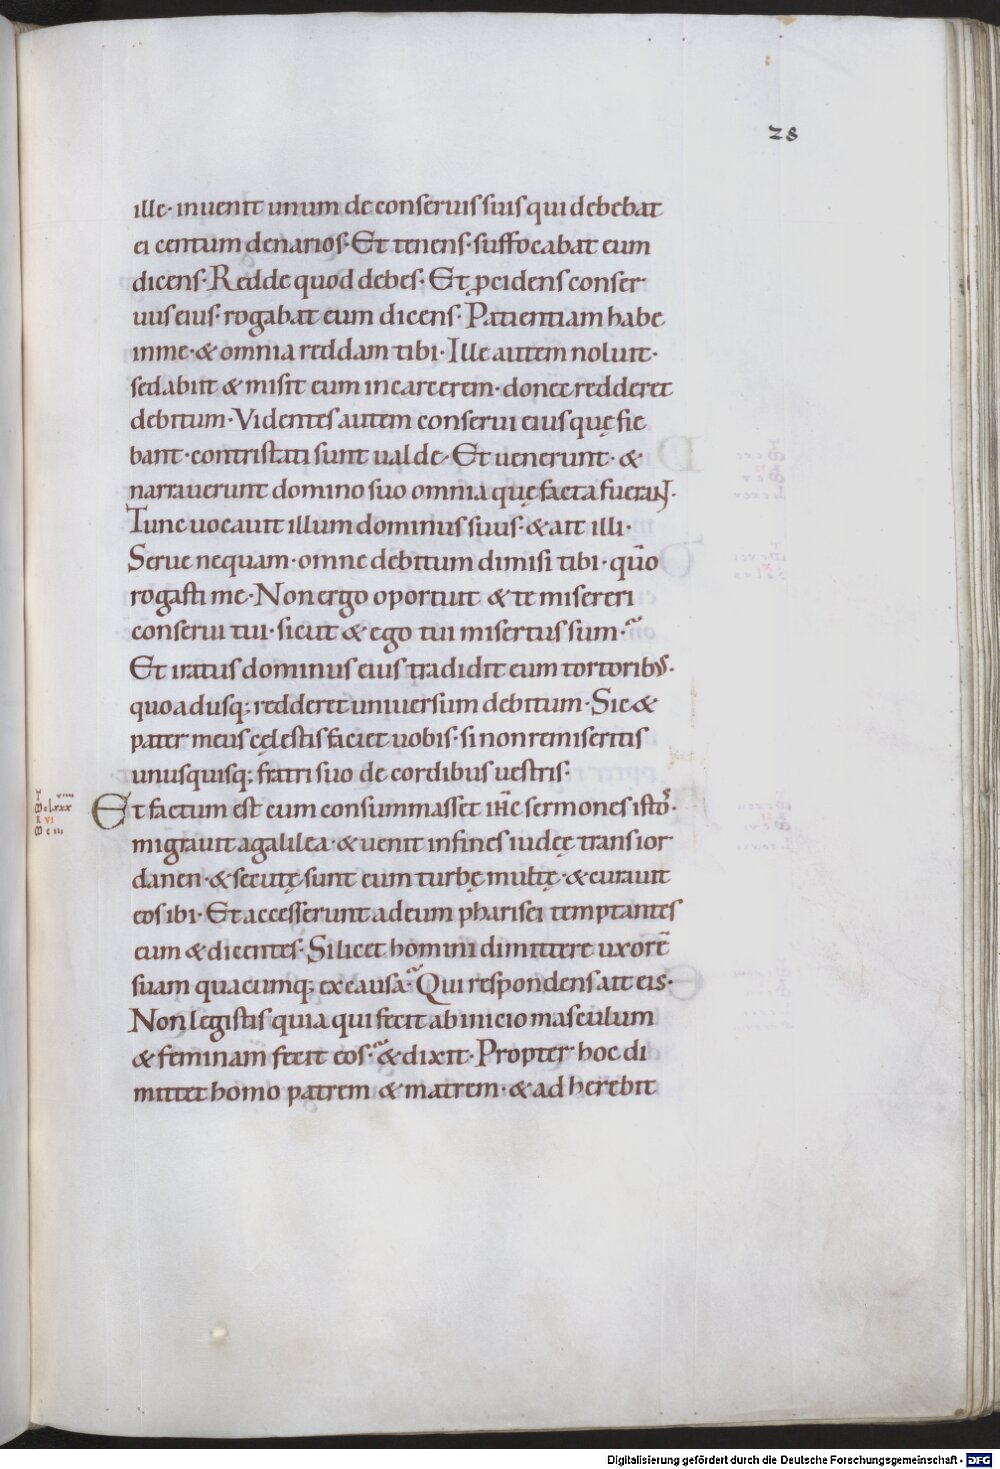 28
ille· inuenit unum de conseruis suis qui debebat
ei centum denarios· Et tenens· suffocabat eum
dicens· Redde quod debes· Et ꝓcidens conser
uus eius· rogabat eum dicens· Patientiam habe
in me· & omnia reddam tibi· Ille autem noluit·
sed abiit & misit eum in carcerem· donec redderet
debitum· Videntes autem conserui eius quę fie
bant· contristati sunt ualde· Et uenerunt· &
narrauerunt domino suo omnia quę facta fuerant·
Tunc uocauit illum dominus suus· & ait illi·
Serue nequam· omne debitum dimisi tibi· qūo
rogasti me· Non ergo oportuit & te misereri
conserui tui· sicut & ego tui misertus sum·
Et iratus dominus eius tradidit eum tortoribus·
quoadusq; redderet uniuersum debitum· Sic &
pater meus cęlestis faciet uobis· si non remiseritis
unusquisq; fratri suo de cordibus uestris·
Et factum est cum consummasset ih̄c sermones istoꝝ·
migrauit a galilea· & uenit in fines iudęę trans ior
danen· & secutę sunt eum turbę multę· & curauit
eos ibi· Et accesserunt ad eum pharisei temptantes
eum & dicentes· Si licet homini dimittere uxorē
suam quacumq; ex causa· Qui respondens ait eis·
Non legistis quia qui fecit ab inicio masculum
& feminam fecit eos· & dixit· Propter hoc di
mittet homo patrem & matrem· & adherebit
Digitalisierung gefördert durch die Deutsche Forschungsgemeinschaft - DFG